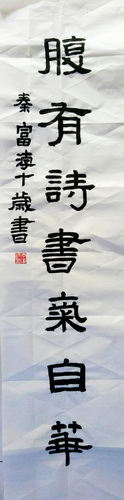 腹有詩書氣自華
秦富海十歲書